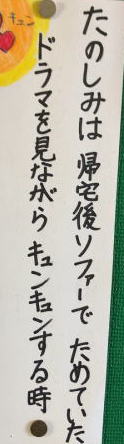 たのしみは 帰宅後ソファーで ためていた
ドラマを見ながら キュンキュンする時
キュン